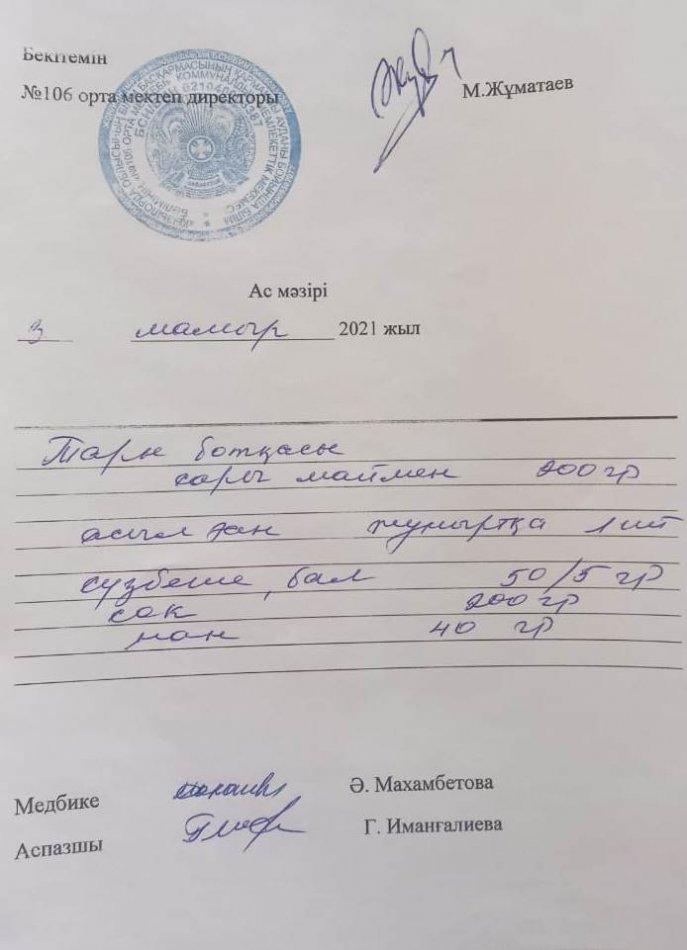 Бекітемін
№106 орта мектеп директоры М.Жұматаев
Ас мәзірі
3 мамыр 2021 жыл
Тары ботқасы
сары маймен 200 гр
асылған жұмыртқа 1 шт
сүзбеше, бал 50/5 гр
сок 200 гр
нан 40 гр
Медбике Ә. Махамбетова
Аспазшы Г. Иманғалиева